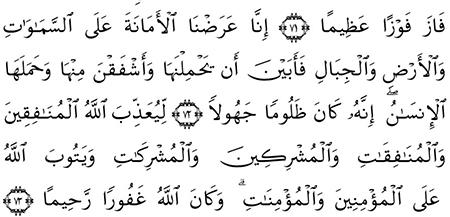 فَازَ فَوْزًا عَظِيمًا ﴿٧١﴾ إِنَّا عَرَضْنَا الْأَمَانَةَ عَلَى السَّمَٰوَٰتِ
وَالْأَرْضِ وَالْجِبَالِ فَأَبَيْنَ أَن يَحْمِلْنَهَا وَأَشْفَقْنَ مِنْهَا وَحَمَلَهَا
الْإِنسَٰنُ ۖ إِنَّهُ كَانَ ظَلُومًا جَهُولًا ﴿٧٢﴾ لِيُعَذِّبَ اللَّهُ الْمُنَٰفِقِينَ
وَالْمُنَٰفِقَٰتِ وَالْمُشْرِكِينَ وَالْمُشْرِكَٰتِ وَيَتُوبَ اللَّهُ
عَلَى الْمُؤْمِنِينَ وَالْمُؤْمِنَٰتِ ۗ وَكَانَ اللَّهُ غَفُورًا رَّحِيمًا ﴿٧٣﴾